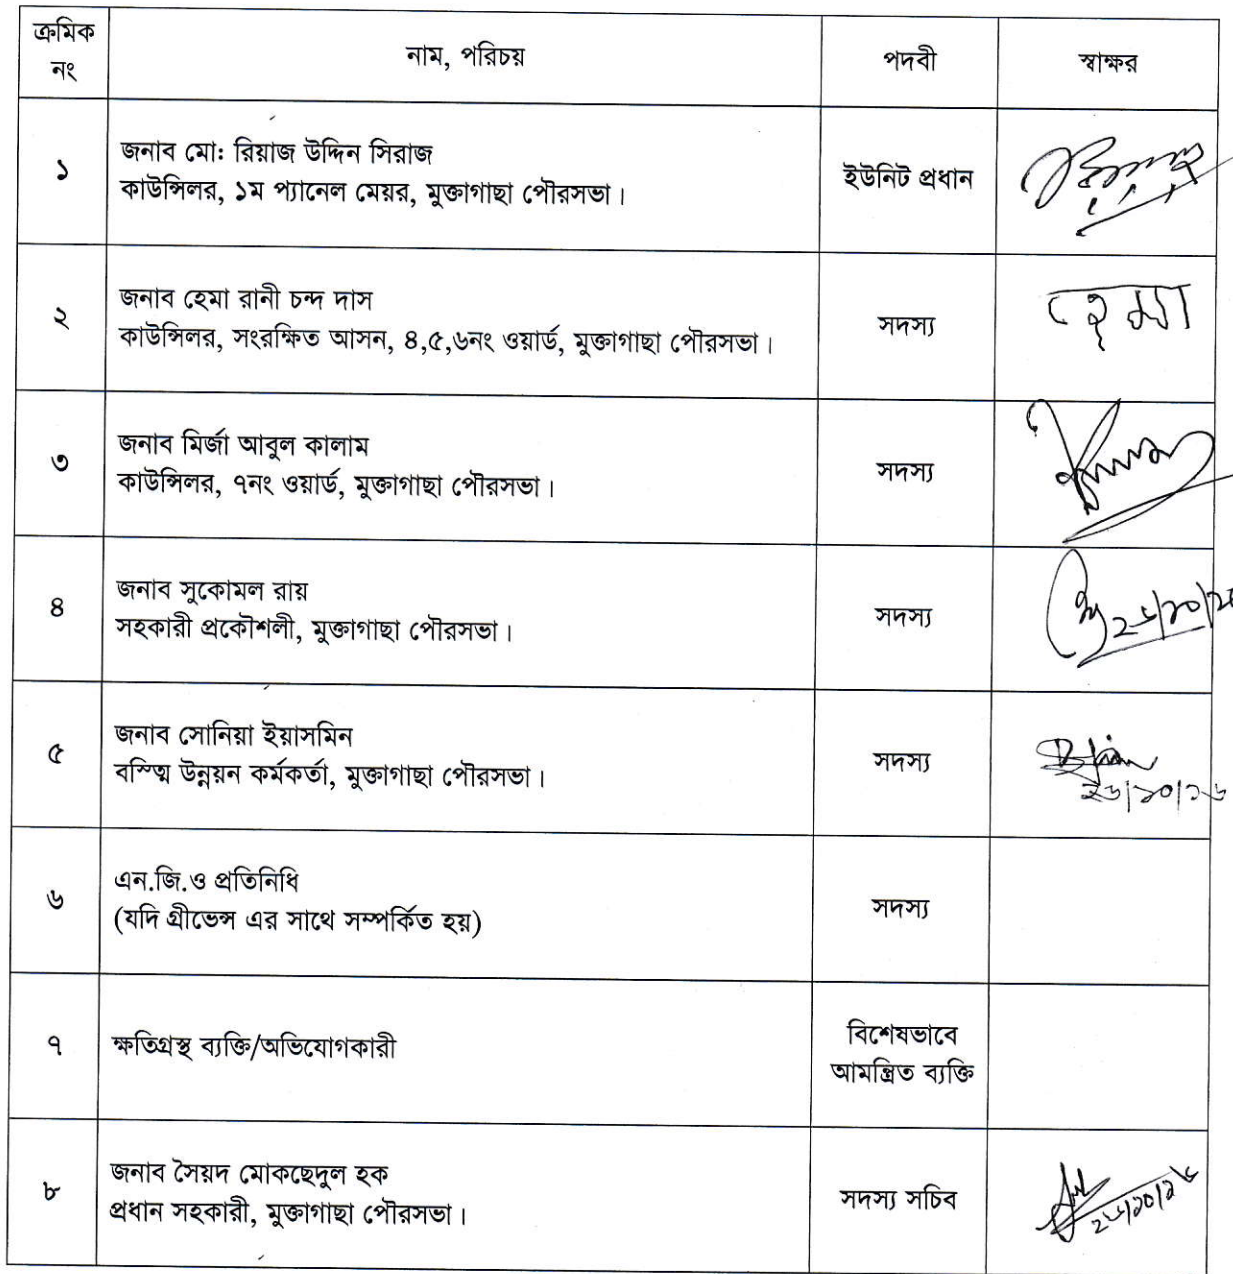 ক্রমিক
নং
নাম, পরিচয়
পদবী
স্বাক্ষর
১
জনাব মো: রিয়াজ উদ্দিন সিরাজ
কাউন্সিলর, ১ম প্যানেল মেয়র, মুক্তাগাছা পৌরসভা।
ইউনিট প্রধান
২
জনাব হেমা রানী চন্দ দাস
কাউন্সিলর, সংরক্ষিত আসন, ৪,৫,৬নং ওয়ার্ড, মুক্তাগাছা পৌরসভা।
সদস্য
হেমা
৩
জনাব মির্জা আবুল কালাম
কাউন্সিলর, ৭নং ওয়ার্ড, মুক্তাগাছা পৌরসভা।
সদস্য
৪
জনাব সুকোমল রায়
সহকারী প্রকৌশলী, মুক্তাগাছা পৌরসভা।
সদস্য
৫
জনাব সোনিয়া ইয়াসমিন
বস্ত্মি উন্নয়ন কর্মকর্তা, মুক্তাগাছা পৌরসভা।
সদস্য
২৬/১০/১৬
৬
এন.জি.ও প্রতিনিধি
(যদি গ্রীভেন্স এর সাথে সম্পর্কিত হয়)
সদস্য
৭
ক্ষতিগ্রস্থ ব্যক্তি/অভিযোগকারী
বিশেষভাবে
আমন্ত্রিত ব্যক্তি
৮
জনাব সৈয়দ মোকছেদুল হক
প্রধান সহকারী, মুক্তাগাছা পৌরসভা।
সদস্য সচিব
২৬/১০/১৬